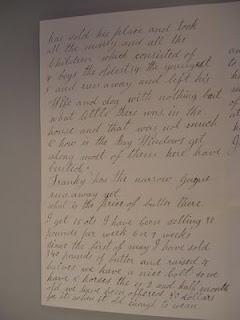 has sold his place and took
all the money and all the
Children which consisted of
4 boys the oldest 14 the youngest
5 and run away and left his
Wife and dog with nothing but
what little there was in the
house and that was not much
how is the Gay Windows get
along most of theirs here have
busted.
Franky has the narrow Guage
run away yet
what is the price of butter there
I get 15 cts I have been selling 28
pounds for week 6 or 7 weeks
since the first of may I have sold
340 pounds of butter and raised 4
calves we have a nice colt so we
have 4 horses she is 2 and half month
old we have been offered 40 dollars
for it when it is old enough to wean